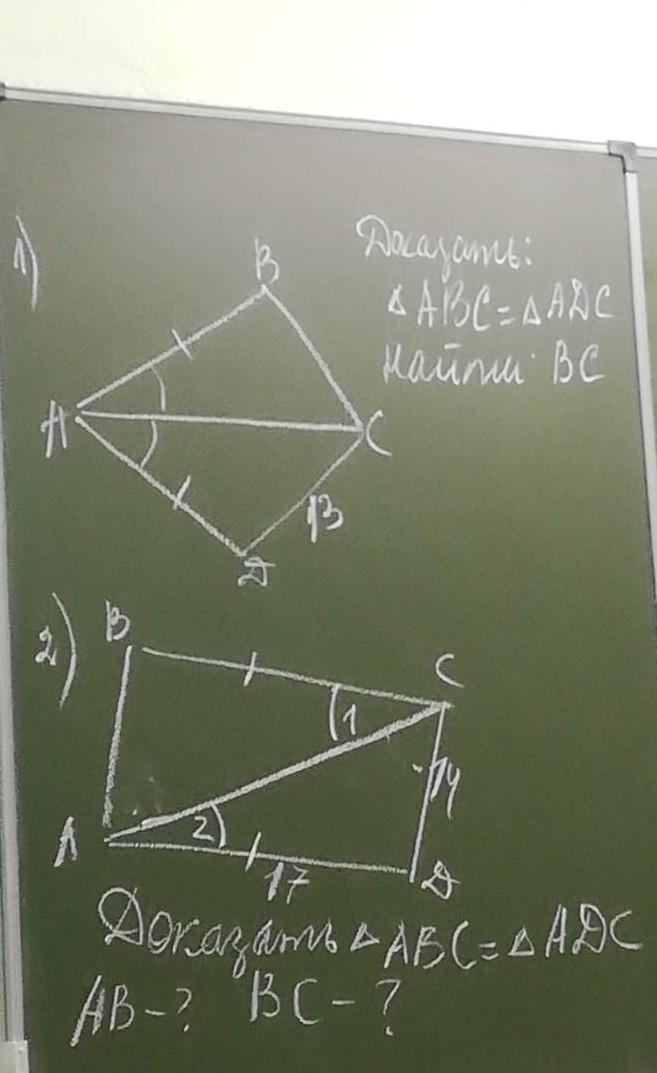 1)
B
Доказать:
△ABC=△ADC
Найти: BC
A
C
13
D
2)
B
C
1
14
A
2
17
D
Доказать △ABC=△ADC
AB-? BC-?